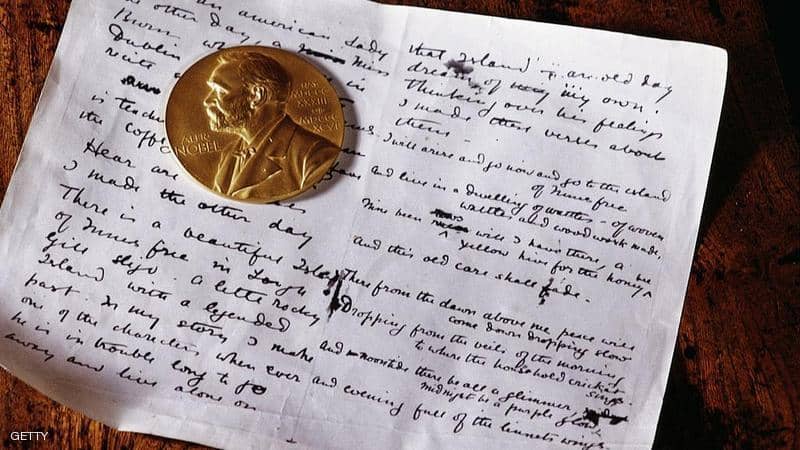 an american lady
other day, a Miss
Dublin who in
recite
is teach
the coff
Hear are
I made the other day
There is a beautiful Isle
of Innis free in Lough
gill sligo a little rocky
Island with a legended
past. In my story I make
one of the characters when ever
he is in trouble long to go
away and live alone on
ALFR.
NOBEL
that Island an old day
dream of my own.
Thinking over his feelings
I made these verses about
them
I will arise and go now and go to the island
of Innis free
and live in a dwelling of wattles - of woven
wattles and wood work made,
Nine bean will I have there, a
yellow hive for the honey
And this old care shall fade.
There from the dawn above me peace will
come down dropping slow
Dropping from the veils of the morning
to where the household cricket sings
and noontide there be all a glimmer
midnight be a purple glow
and evening full of the linnets wings.
GETTY